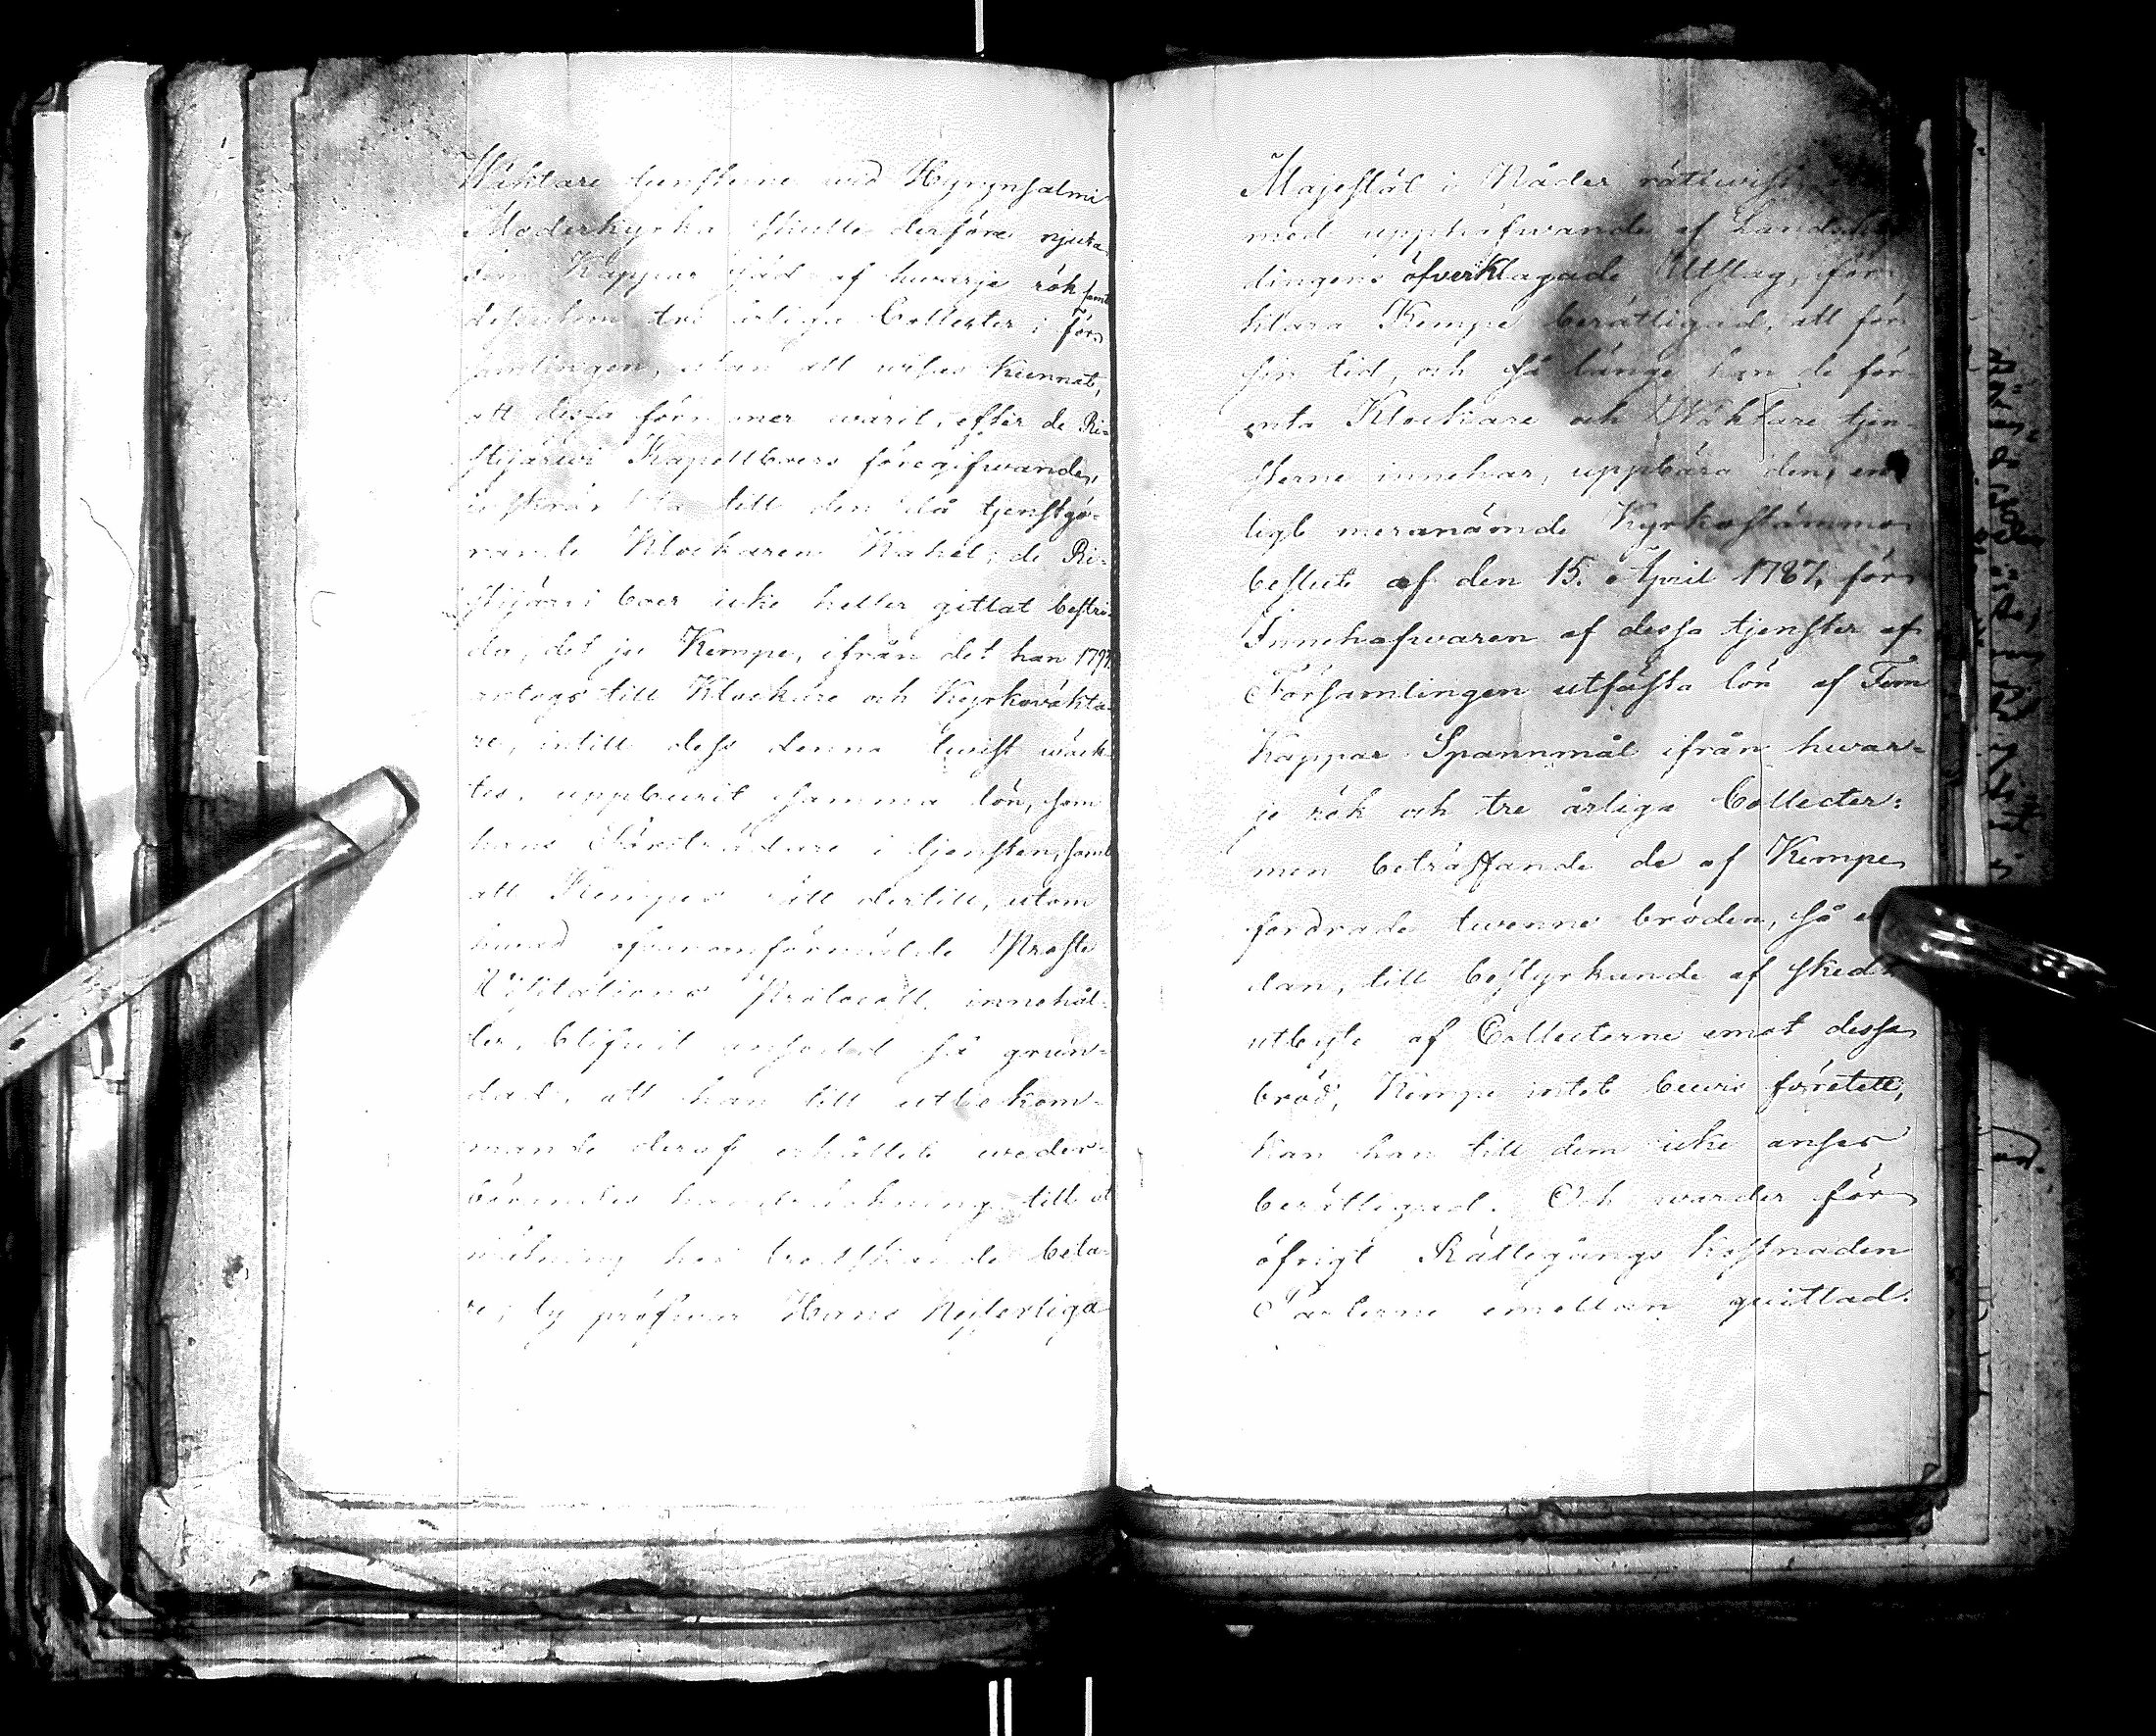 Wäktare tiensterne wid Hyrynsalmi
Moderkyrka skulle derföre njuta
fem Kappar säd af hwarje rök samt
dessutom tre årliga Collecter i för-
samlingen, utan att wisas kunnat,
att dessa förmåner warit, efter de Ri-
stijärwi Kapellboers föregifwande,
inskränkta till den då tjenstgö-
rande Klockaren Wahel; de Ri-
stijärwi boer icke heller gittat bestri-
da, det ju Kempe, ifrån det han 1791
antogs till Klockare och Kyrkowäkta-
re, intill dess denna twist wäck-
tes, uppburit samma lön, som
hans Företrädare i tjensten, samt
att Kempes rätt dertill, utom
hwad ofwanförmälde Prosta
Visitations Protocoll innehål-
ler, blifwit ansedd så grun-
dad, att han till utbekom-
mande deraf erhållit weder-
börandes handräckning till ut
mätning hos tredskande beta-
re; ty pröfwar Hans Kejserliga
Majestät i Nåder rättwist
med upphäfwande af Landshöf-
dingens öfverklagade Utslag, för-
klara Kempe berättigad, att för
sin tid, och så länge han de för-
enta Klockare och Wäktare tjen-
sterne innehar, uppbära den, en-
ligt meranämde Kyrkostämmo-
beslut af den 15. April 1787, för
Innehafwaren af dessa tjenster af
Församlingen utfästa lön af Fem
Kappar Spannmål ifrån hwar-
je rök och tre årliga Collecter:
men beträffande de af Kempe
fordrade twenne bröden, så
dan, till bestyrkande af skedt
utbyte af Collecterne emot dessa
bröd, Kempe intet bewis företett,
kan han till dem icke anses
berättigad. Och warder för
öfrigt Rättegångs kostnaden
Parterne emellan quittad.